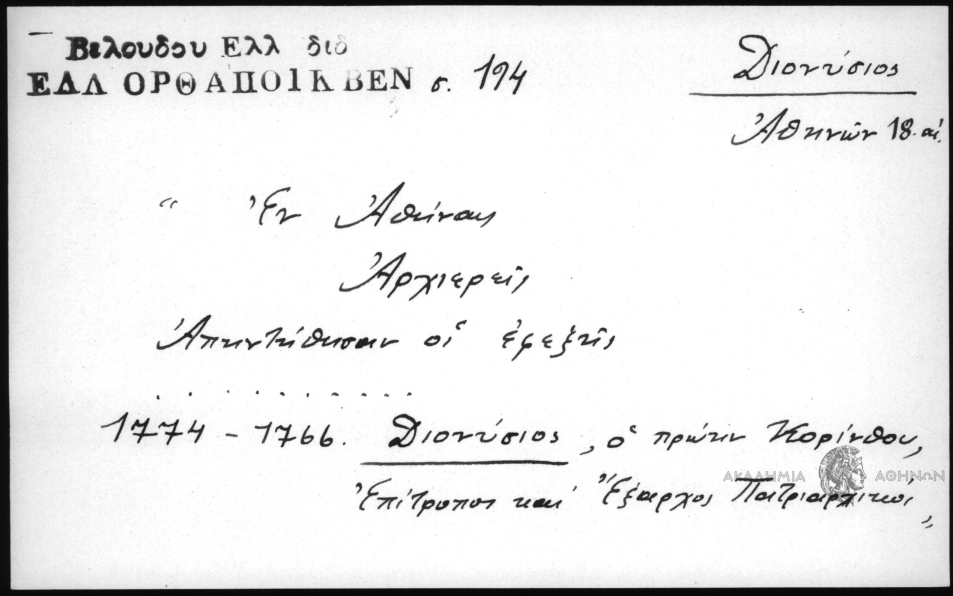 Βελουδου Ελλ διδ
ΕΛΛ ΟΡΘ ΑΠΟΙΚ ΒΕΝ σ. 194
Διονύσιος
Ἀθηνῶν 18. αἰ.
“ Ἐν Ἀθήναις
Ἀρχιερεῖς
Ἀπηντήθησαν οἱ ἐφεξῆς
. . . . . . . . . . .
1774 - 1766. Διονύσιος, ὁ πρώην Κορίνθου,
ΑΚΑΔΗΜΙΑ ΑΘΗΝΩΝ
Ἐπίτροπος καὶ Ἔξαρχος Πατριαρχικός „